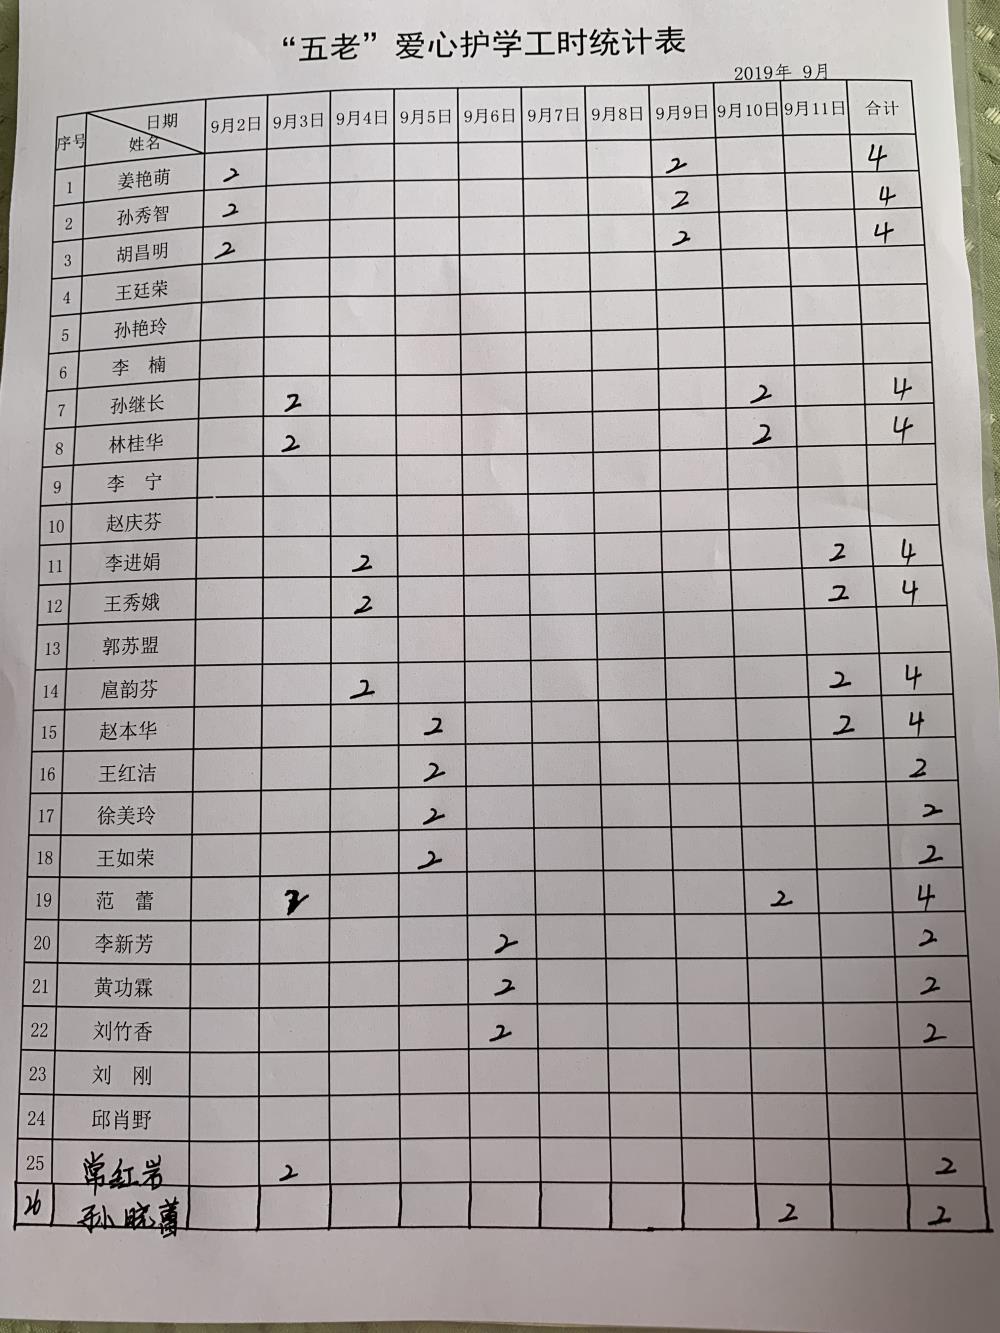 “五老”爱心护学工时统计表
2019年 9月
序号 日期 姓名 9月2日 9月3日 9月4日 9月5日 9月6日 9月7日 9月8日 9月9日 9月10日 9月11日 合计
1 姜艳萌 2 2 4
2 孙秀智 2 2 4
3 胡昌明 2 2 4
4 王廷荣
5 孙艳玲
6 李 楠
7 孙继长 2 2 4
8 林桂华 2 2 4
9 李 宁
10 赵庆芬
11 李进娟 2 2 4
12 王秀娥 2 2 4
13 郭苏盟
14 扈韵芬 2 2 4
15 赵本华 2 2 4
16 王红洁 2 2
17 徐美玲 2 2
18 王如荣 2 2
19 范 蕾 2 2 4
20 李新芳 2 2
21 黄功霖 2 2
22 刘竹香 2 2
23 刘 刚
24 邱肖野
25 常红岩 2 2
26 孙晓 2 2